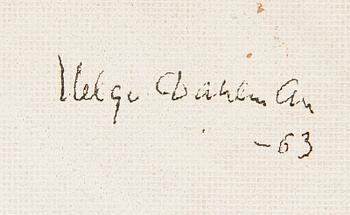 Helge Dahlman
-63